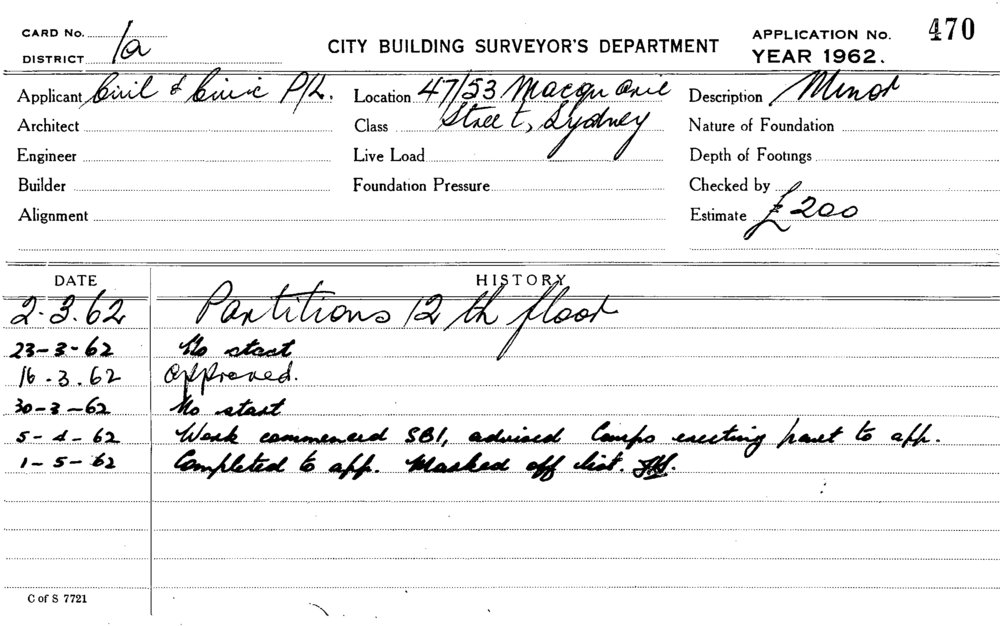 CARD No.
DISTRICT 1a
CITY BUILDING SURVEYOR'S DEPARTMENT
APPLICATION No. 470
YEAR 1962.
Applicant Civil & Civic P/L. Location 47/53 Macquarie Description Minor
Architect Class Street, Sydney Nature of Foundation
Engineer Live Load Depth of Footings
Builder Foundation Pressure Checked by
Alignment Estimate £200
DATE HISTORY
2.3.62 Partitions 12th floor
23-3-62 No start
16.3.62 Approved.
30-3-62 No start
5-4-62 Work commenced SBI, advised erecting to app.
1-5-62 Completed to app. Marked off list.
C of S 7721